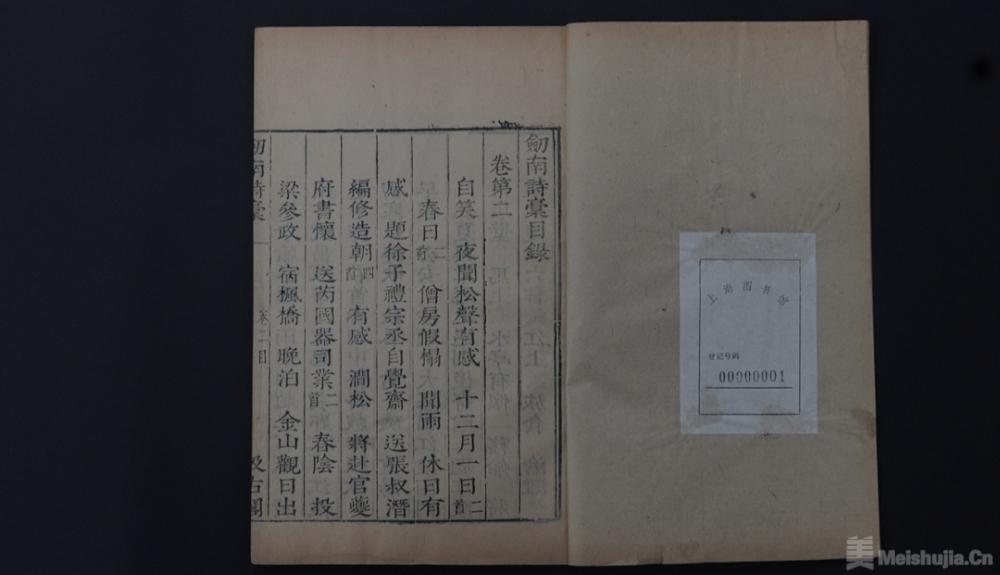 劎南詩稾目錄
卷第二
自笑 夏夜聞松聲有感 十二月一日二首
春日二首 僧房假榻 聞雨 休日有
感 題徐子禮宗丞自覺齋 送張叔潛
編修造朝四首 有感 澗松 將赴官夔
府書懷 送芮國器司業二首 春陰 投
梁參政 宿楓橋 晚泊 金山觀日出
劎南詩稾
卷二目
汲古閣
登记号码
00000001
美 Meishujia.Cn